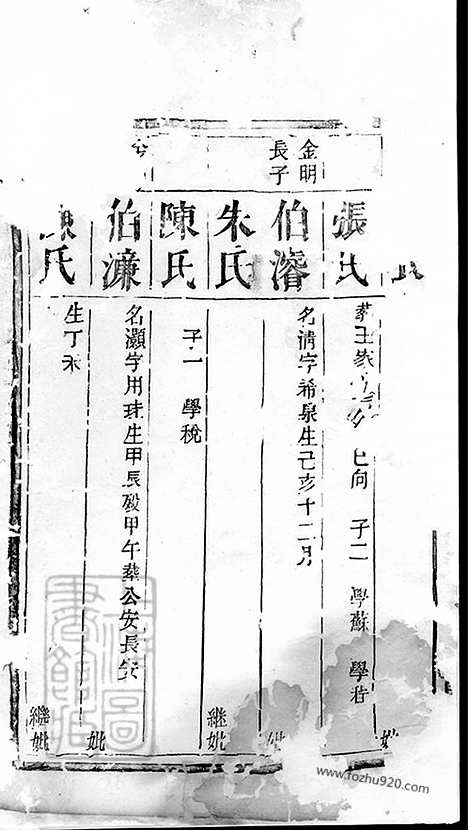 氏
張氏 葬王家 巳向 子二 學蘇 學
妣
金明長子
伯濬 名清字希泉生己亥十二月
朱氏
妣
陳氏 子一 學稅
継妣
伯濂 名灝字用珠生甲辰殁甲午葬公安長安
妣
陳氏 生丁未
継妣
www.fozhu920.com